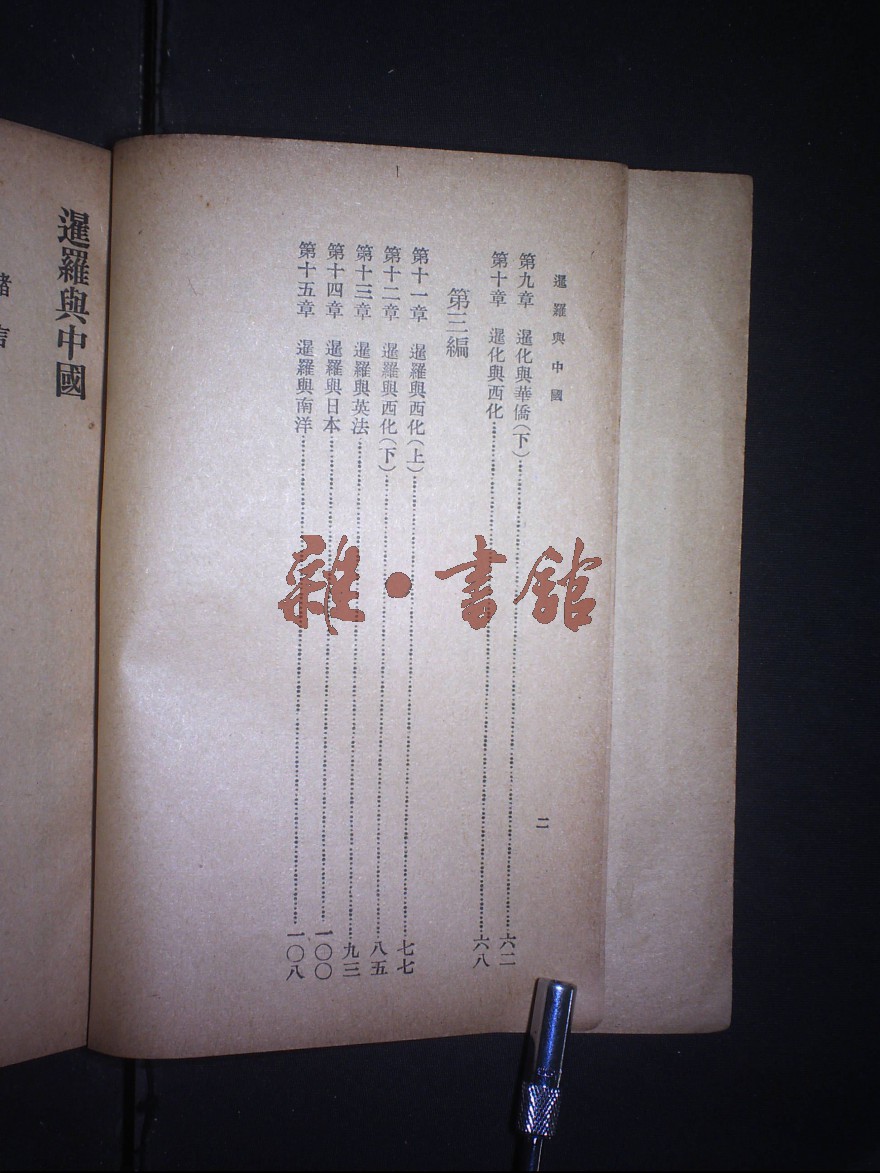 暹羅與中國
第九章 暹化與華僑(下)……六二
第十章 暹化與西化……六八
第三編
第十一章 暹羅與西化(上)……七七
第十二章 暹羅與西化(下)……八五
第十三章 暹羅與英法……九三
第十四章 暹羅與日本……一〇〇
第十五章 暹羅與南洋……一〇八
二
暹羅與中國
緒言
雜·書館